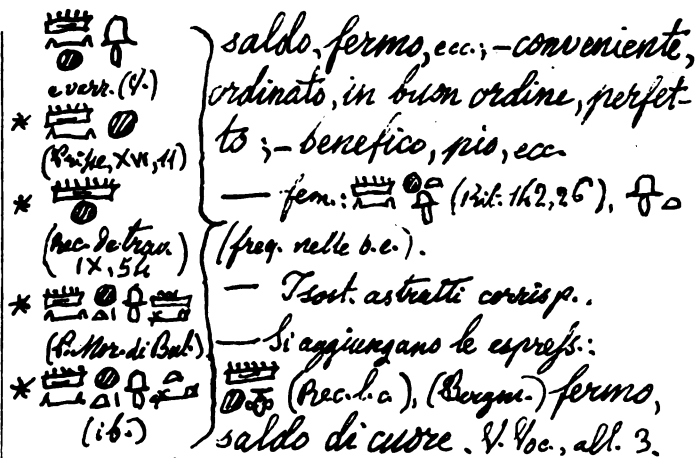 𓏠𓈖𓐍 𓋊
e varr. (V.)
* 𓏠𓈖𓐍
(Prisse, XVI, 11)
* 𓏠𓐍
(Rec. de trav.
IX, 54
)
*
(P. Mor. di Bul.)
*
(ib.)
saldo, fermo, ecc.; – conveniente,
ordinato, in buon ordine, perfet-
to; – benefico, pio, ecc.
— fem.: (Rit. 142, 26),
(freq. nelle b. e.).
— I sost. astratti corrisp..
— Si aggiungano le espress.:
(Rec. l. c.), (Bergm.) fermo,
saldo di cuore. V. Voc., all. 3.